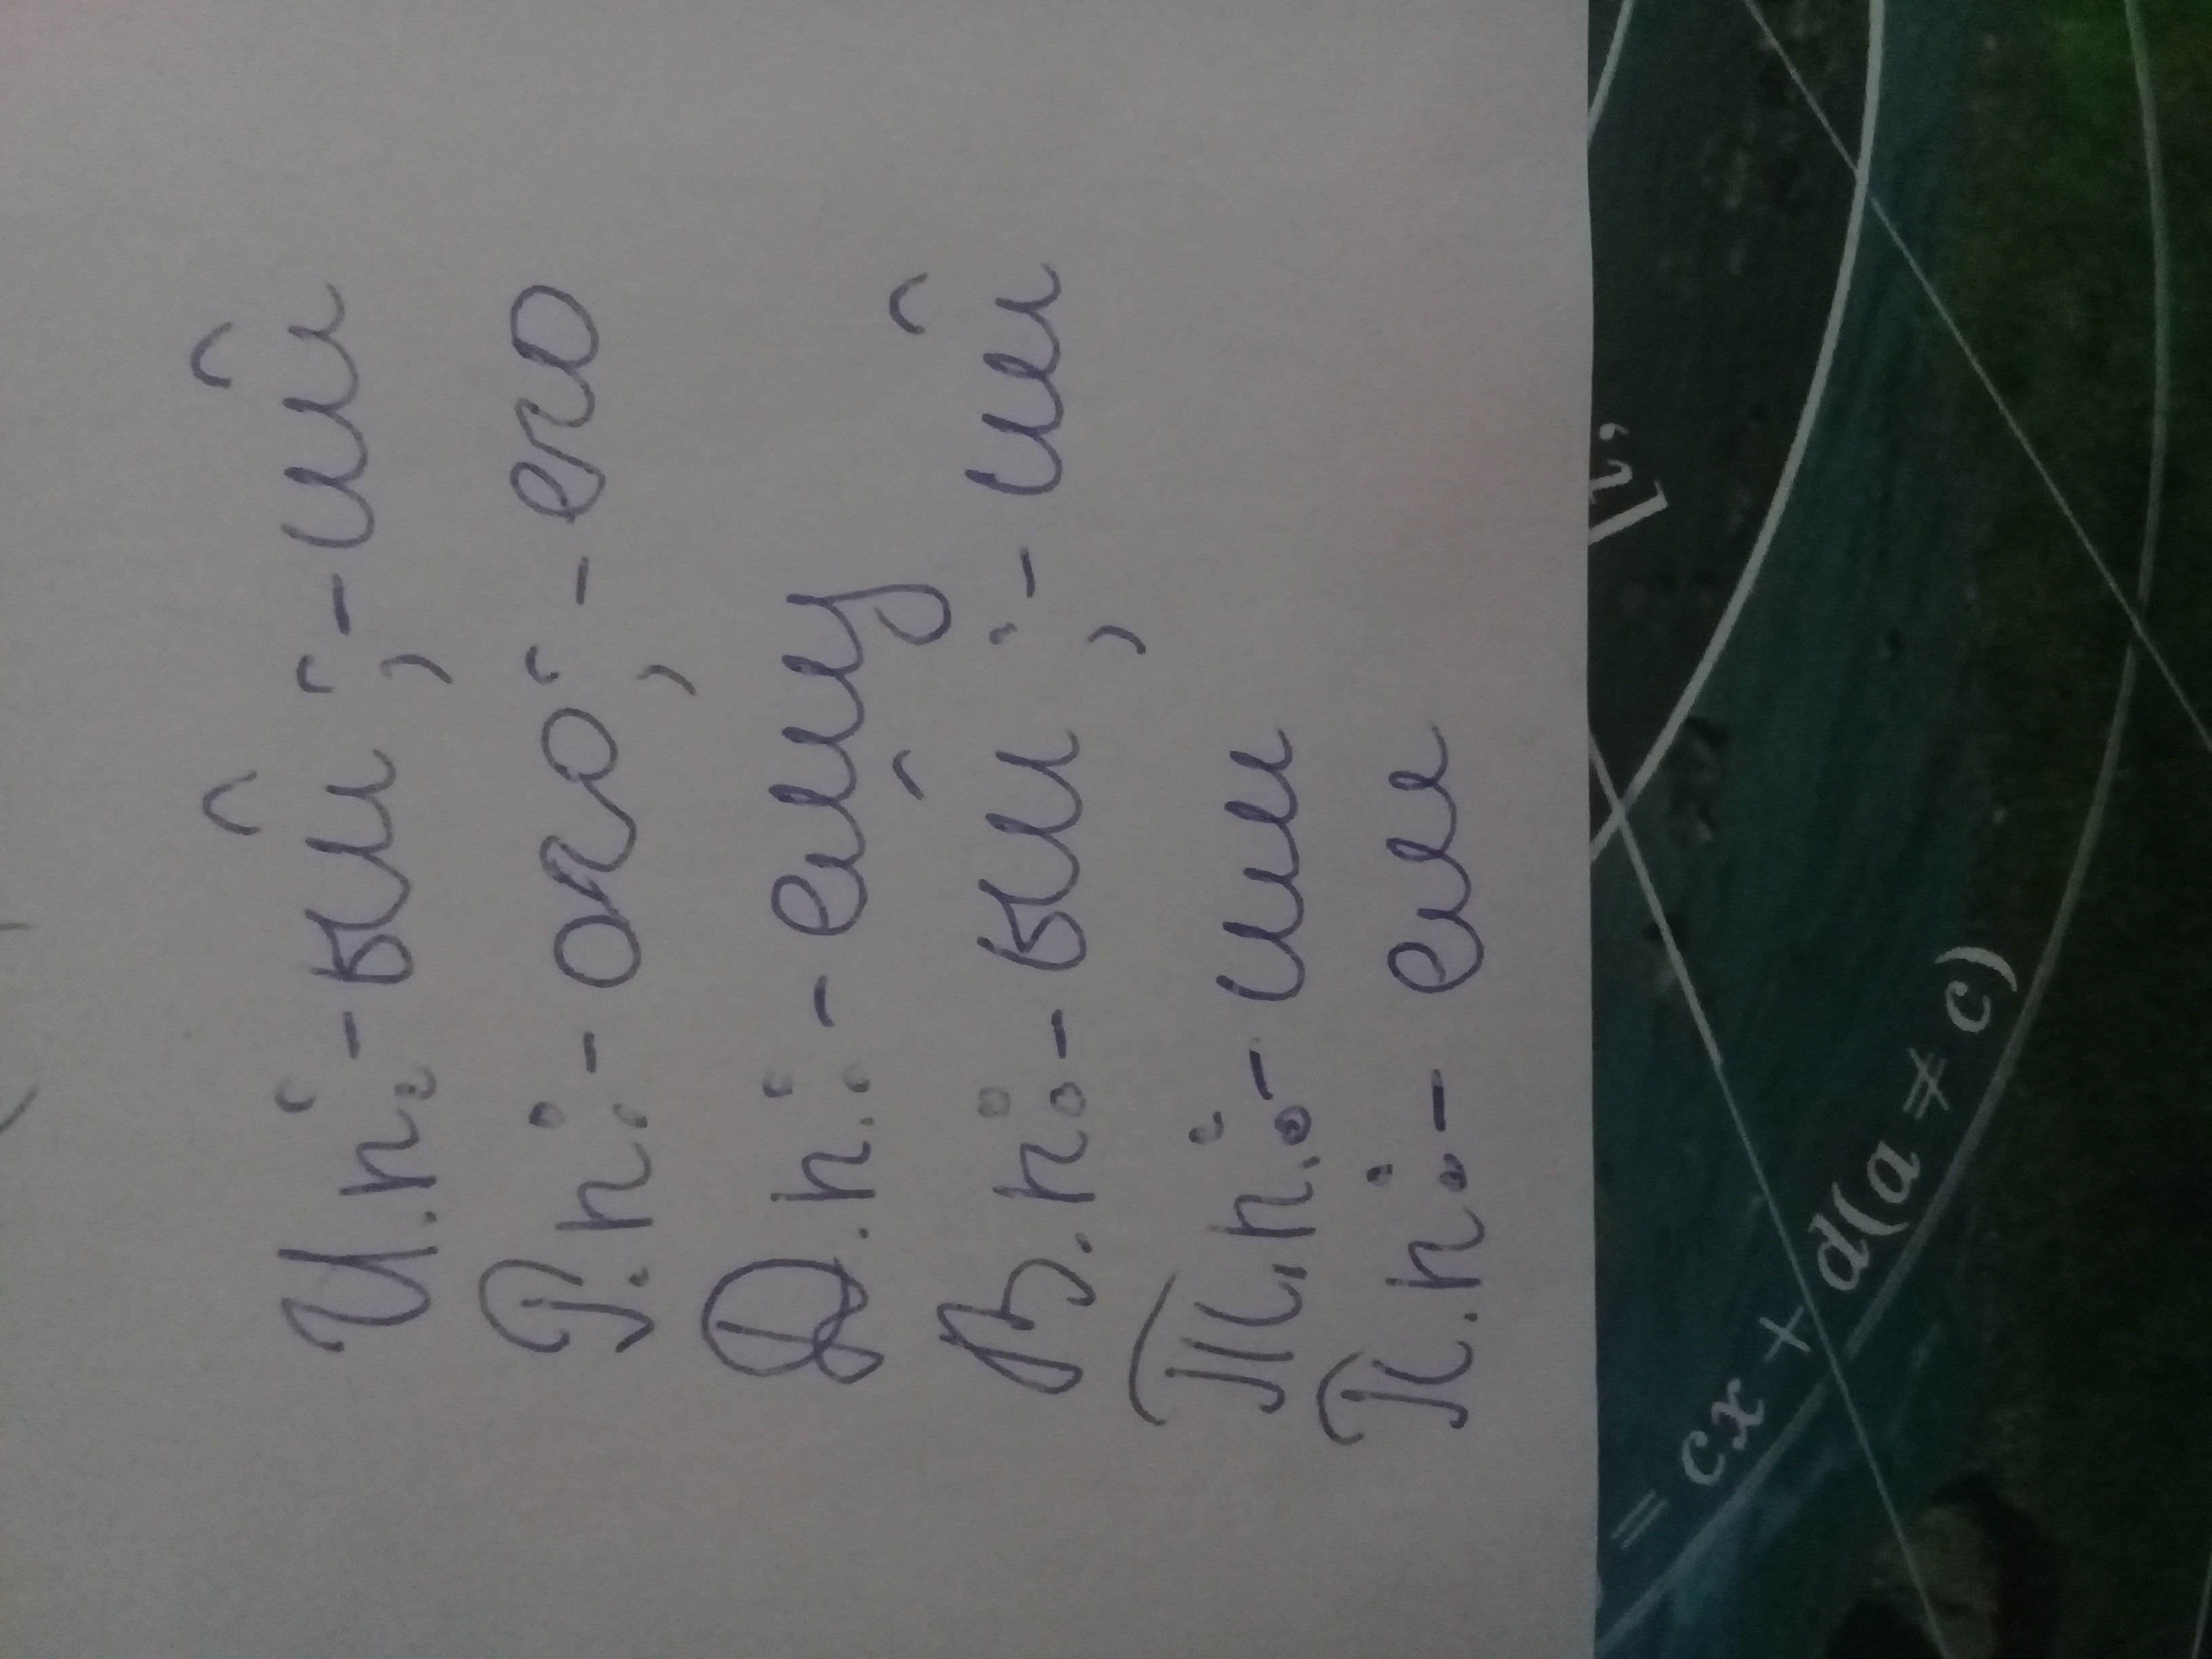 И.п.: -ый; -ий
Р.п.: -ого; -его
Д.п.: -ему
В.п.: -ый; -ий
Т.п.: -им
П.п.: - ем
= cx + d(a ≠ c)